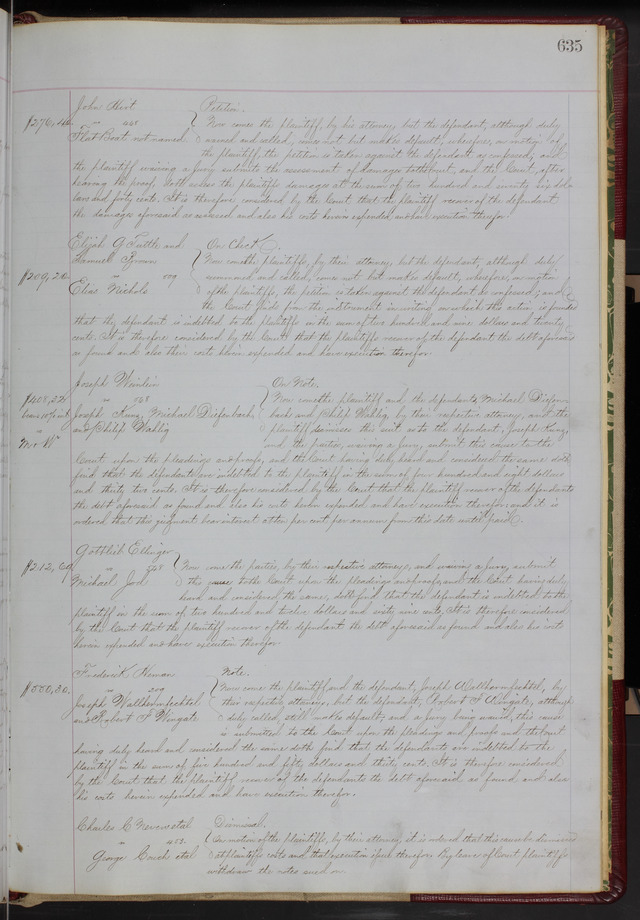 635
John Hirt Petition.
$276,40. " 448 Now comes the plaintiff, by his attorney, but the defendant, although duly
Flat Boat not named named and called, comes not but makes default; wherefore, on motion of
the plaintiff, the petition is taken against the defendant as confessed, and
the plaintiff waiving a jury submits the assessment of damages to the Court, and the Court, after
hearing the proof, doth assess the plaintiffs damages at the sum of two hundred and seventy six dol-
lars and forty cents. It is therefore considered by the Court that the plaintiff recover of the defendant
the damages aforesaid as assessed and also his costs herein expended and have execution therefor.
Elijah G. Tuttle and On Check.
Samuel Brown Now come the plaintiffs, by their attorney, but the defendant, although duly
$209,20. " 509 summoned and called, comes not but makes default, wherefore, on motion
Elias Nichols of the plaintiffs, the petition is taken against the defendant as confessed; and
the Court finds from the instrument in writing on which this action is founded
that the defendant is indebted to the plaintiffs in the sum of two hundred and nine dollars and twenty
cents. It is therefore considered by the Court that the plaintiffs recover of the defendant the debt aforesaid
as found and also their costs herein expended and have execution therefor.
Joseph On Note.
$408,32 Now come the plaintiff and the defendants, Michael Diefen-
Joseph Kunz, Michael Diefenbach, bach and Philip by their respective attorneys, and the
and Philip plaintiff dismisses this suit as to the defendant, Joseph Kunz,
and the parties, waiving a jury, submit this cause to the
Court upon the pleadings and proofs, and the Court having duly heard and considered the same doth
find that the defendants are indebted to the plaintiff in the sum of four hundred and eight dollars
and thirty two cents. It is therefore considered by the Court that the plaintiff recover of the defendants
the debt aforesaid as found and also his costs herein expended and have execution therefor; and it is
ordered that this judgment bear interest at ten per cent per annum from this date until paid.
Gottlieb Ellinger
$212,69 Now come the parties, by their respective attorneys, and waiving a jury, submit
Michael this cause to the Court upon the pleadings and proofs, and the Court having duly
heard and considered the same, doth find that the defendant is indebted to the
plaintiff in the sum of two hundred and twelve dollars and sixty nine cents. It is therefore considered
by the Court that the plaintiff recover of the defendant the debt aforesaid as found and also his costs
herein expended and have execution therefor.
Frederick Heman Note.
$550,30. Now come the plaintiff and the defendant, Joseph Wallhermfechtel, by
Joseph Wallhermfechtel their respective attorneys, but the defendant, Robert F. Wingate, although
and Robert F Wingate duly called, still makes default; and a jury being waived, this cause
is submitted to the Court upon the pleadings and proofs and the Court
having duly heard and considered the same doth find that the defendants are indebted to the
plaintiff in the sum of five hundred and fifty dollars and thirty cents. It is therefore considered
by the Court that the plaintiff recover of the defendants the debt aforesaid as found and also
his costs herein expended and have execution therefor.
Charles C et al Dismissed.
" 415. On motion of the plaintiffs, by their attorney, it is ordered that this cause be dismissed
George et al at plaintiffs costs and that execution issue therefor. By leave of Court plaintiffs
withdraw the notes sued on.